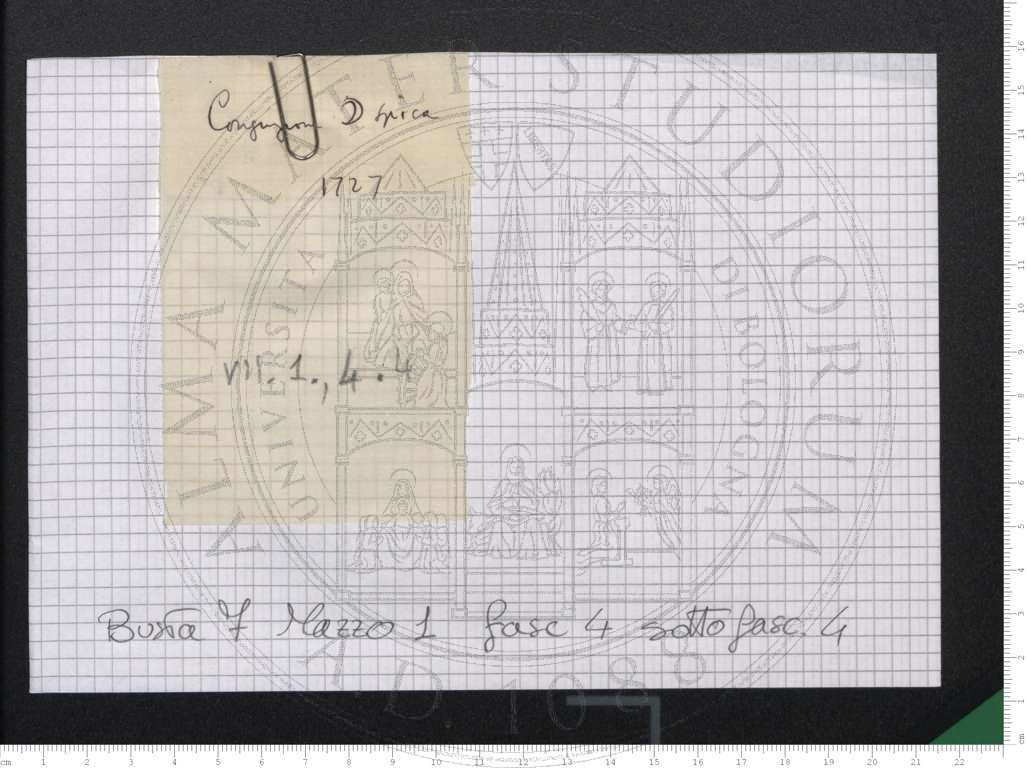 1727
VII. 1., 4. 4
Busta 7 Mazzo 1 fasc 4 sotto fasc. 4
ALMA MATER STUDIORUM
UNIVERSITA DI BOLOGNA
A.D. 1088
cm 1 2 3 4 5 6 7 8 9 10 11 12 13 14 15 16 17 18 19 20 21 22
cm 1 2 3 4 5 6 7 8 9 10 11 12 13 14 15 16